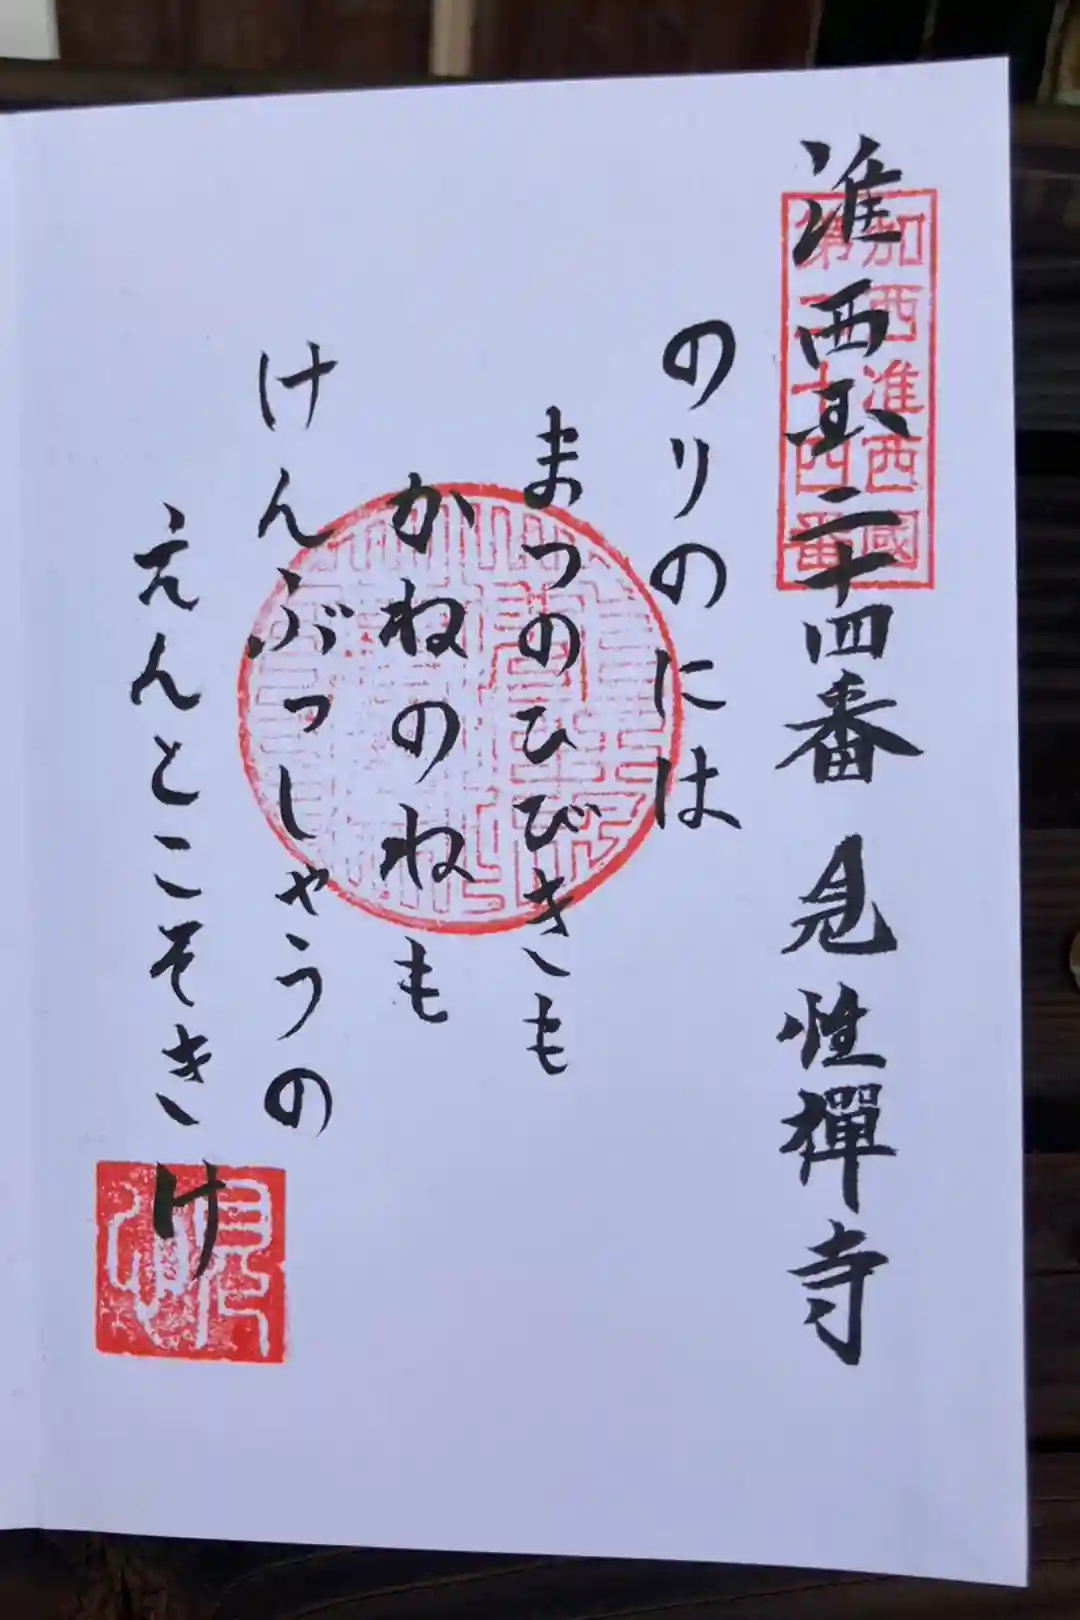 准西国二十四番 見性禅寺
加西准西國
第二十四番
のりのには
まつのひびきも
かねのねも
けんぶつしやうの
えんとこそきけ